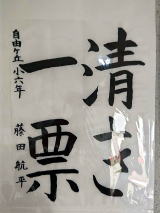 清き
一票
自由ケ丘小六年
藤田航平